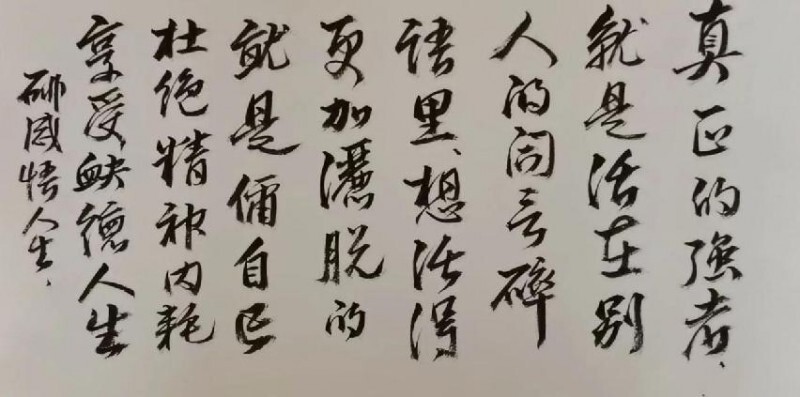 真正的強者、
就是活在别
人的闲言碎
语里、想活得
更加灑脱的
就是自己
杜绝精神内耗
享受缺德人生
感悟人生、